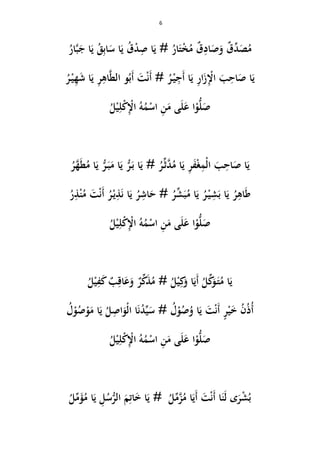 6
مُصَدِّقٌ وَصَادِقٌ مُخْتَارُ # يَا صِدْقُ يَا سَابِقُ يَا جَبَّارُ
يَا صَاحِبَ الْإِزَارِ يَا أَجِيْرُ # أَنْتَ أَبُو الطَّاهِرِ يَا شَهِيْرُ
صَلُّوْا عَلَى مَنِ اسْمُهُ الْإِكْلِيْلُ
يَا صَاحِبَ الْمِغْفَرِ يَا مُدَّثِّرُ # يَا بَرُّ يَا مَبَرُّ يَا مُطَهَّرُ
طَاهِرُ يَا بَشِيْرُ يَا مُبَشِّرُ # حَاشِرُ يَا نَذِيْرُ أَنْتَ مُنْذِرُ
صَلُّوْا عَلَى مَنِ اسْمُهُ الْإِكْلِيْلُ
يَا مُتَوَكِّلُ أَيَا وَكِيْلُ # مُذَكِّرٌ وَعَاقِبٌ كَفِيْلُ
أُذُنُ خَيْرٍ أَنْتَ يَا وُصُوْلُ # سَيِّدُنَا الْوَاصِلُ يَا مَوْصُوْلُ
صَلُّوْا عَلَى مَنِ اسْمُهُ الْإِكْلِيْلُ
بُشْرَى لَنَا أَنْتَ أَيَا مُزَّمِّلُ # يَا خَاتِمَ الرُّسُلِ يَا مُؤَمِّلُ